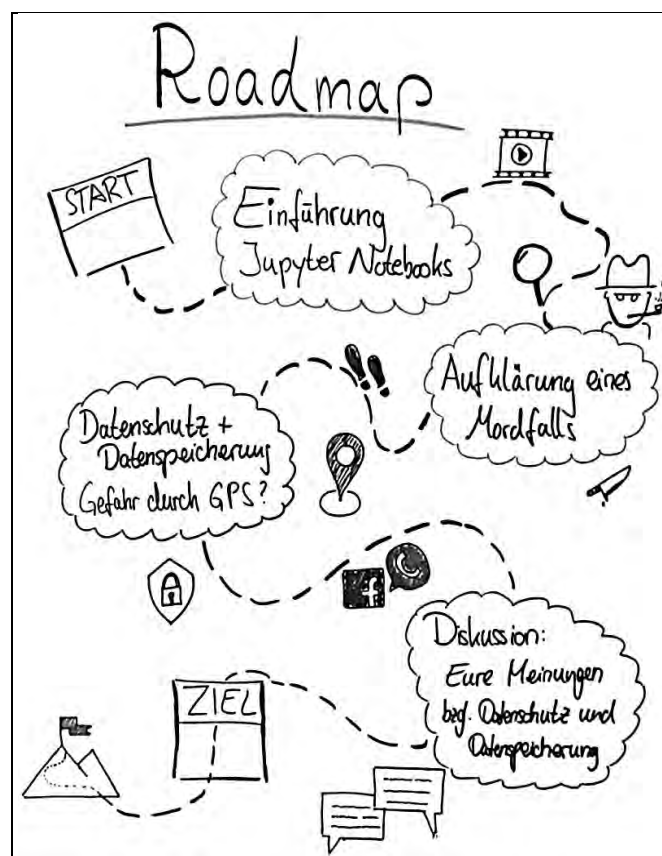 Roadmap
START
Einführung
Jupyter Notebooks
Aufklärung eines
Mordfalls
Datenschutz +
Datenspeicherung
Gefahr durch GPS?
f
Diskussion:
Eure Meinungen
bzgl. Datenschutz und
Datenspeicherung
ZIEL